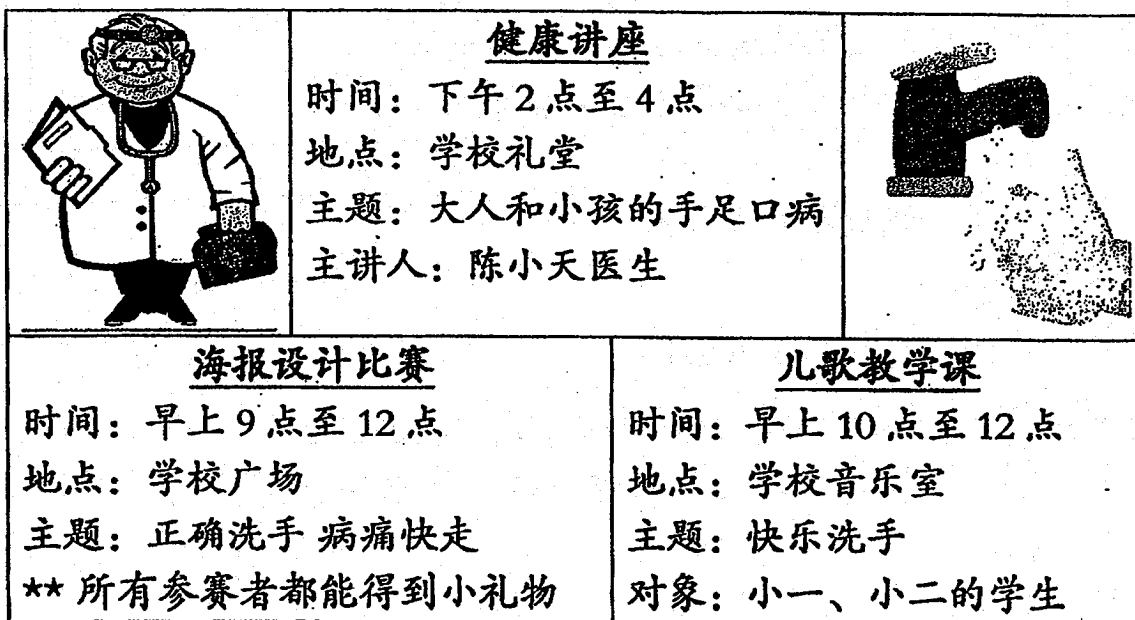 健康讲座
时间：下午2点至4点
地点：学校礼堂
主题：大人和小孩的手足口病
主讲人：陈小天医生
海报设计比赛
时间：早上9点至12点
地点：学校广场
主题：正确洗手 病痛快走
** 所有参赛者都能得到小礼物
儿歌教学课
时间：早上10点至12点
地点：学校音乐室
主题：快乐洗手
对象：小一、小二的学生